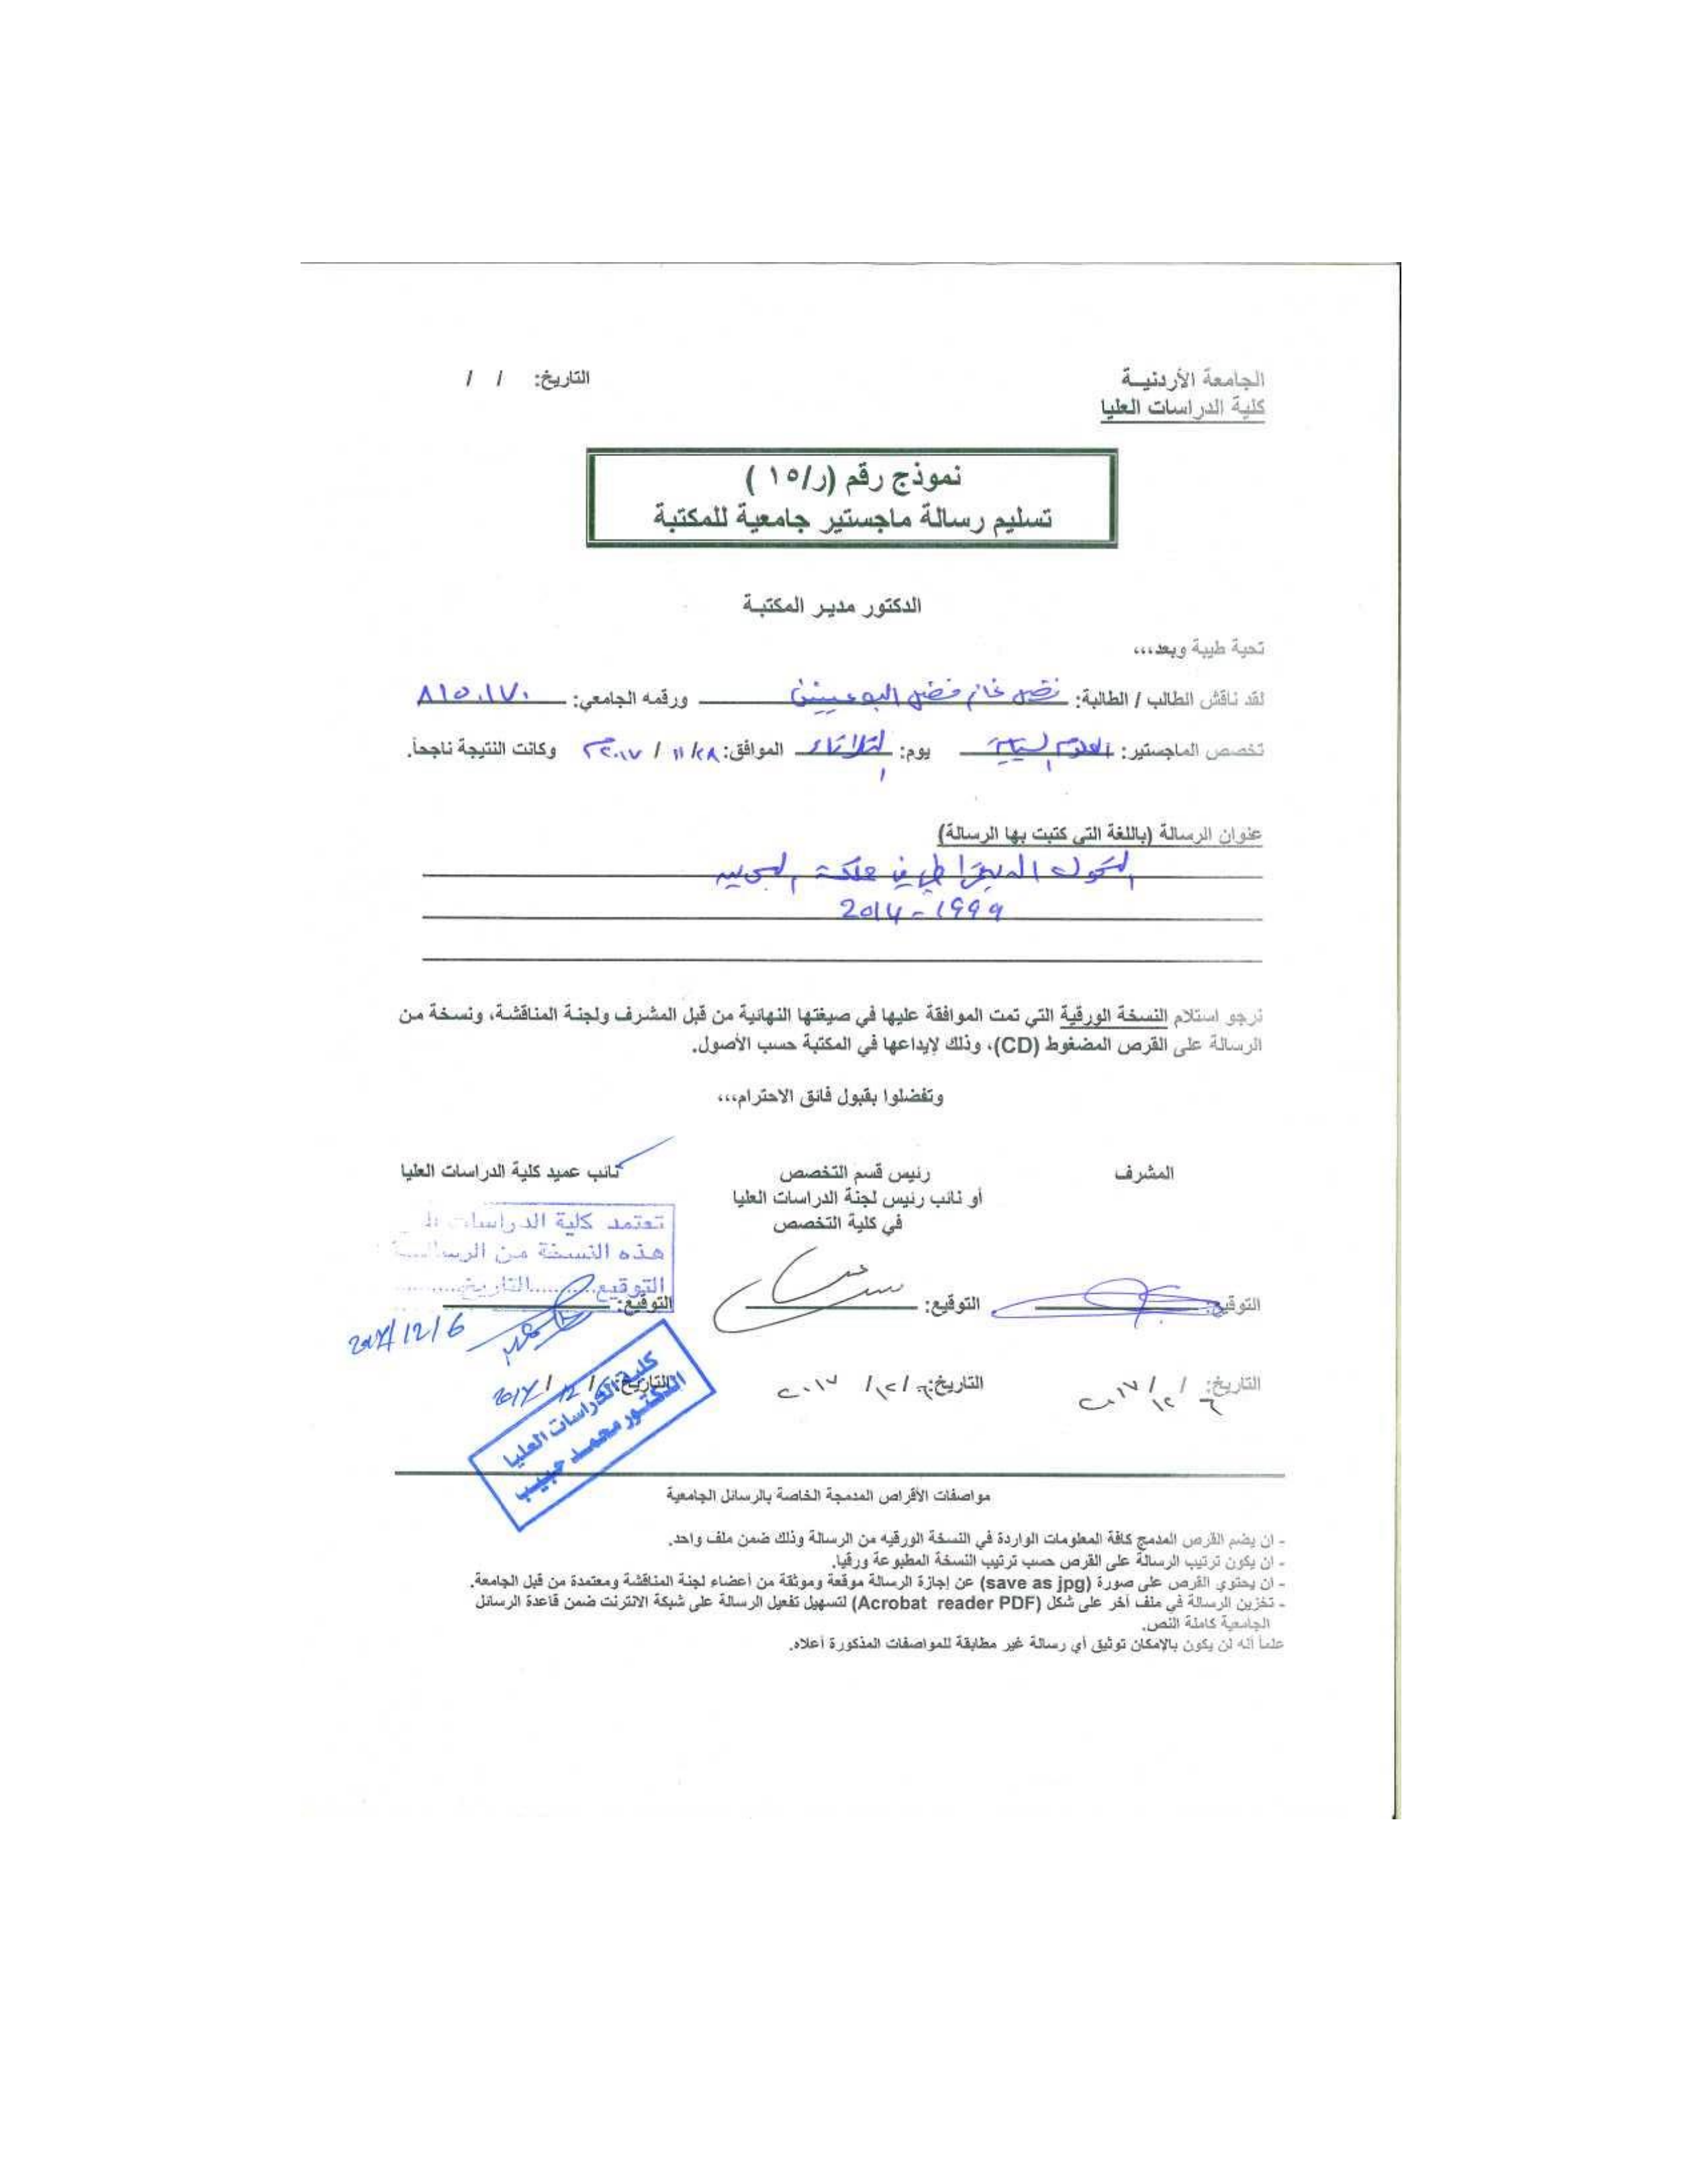 الجامعة الأردنيـة
التاريخ: / /
كلية الدراسات العليا
نموذج رقم (ر/١٥ )
تسليم رسالة ماجستير جامعية للمكتبة
الدكتور مدير المكتبـة
تحية طيبة وبعد،،،
لقد ناقش الطالب / الطالبة: غانم فضل البوعينين ورقمه الجامعي: ٨١٥٠١٧٠
تخصص الماجستير: العلوم السياسية يوم: الثلاثاء الموافق: ٢٨/ ١١ / ٢٠١٧م وكانت النتيجة ناجحاً.
عنوان الرسالة (باللغة التي كتبت بها الرسالة)
التحول الديمقراطي في مملكة البحرين
1999 - 2014
نرجو استلام النسخة الورقية التي تمت الموافقة عليها في صيغتها النهائية من قبل المشرف ولجنة المناقشة، ونسخة من
الرسالة على القرص المضغوط (CD)، وذلك لإيداعها في المكتبة حسب الأصول.
وتفضلوا بقبول فائق الاحترام،،،
المشرف
رئيس قسم التخصص
نائب عميد كلية الدراسات العليا
أو نائب رئيس لجنة الدراسات العليا
في كلية التخصص
تعتمد كلية الدراسات
هذه النسخة من الرسالـــة
التوقيع..........التاريخ..........
التوقيع:
التوقيع:
التوقيع:
2017/12/6
التاريخ: ٦ / ١٢ / ٢٠١٧
التاريخ: ٦ /١٢/ ٢٠١٧
التاريخ: 6 / 12 / 2017
كلية الدراسات العليا
الدكتور محمد حبيب
مواصفات الأقراص المدمجة الخاصة بالرسائل الجامعية
- ان يضم القرص المدمج كافة المعلومات الواردة في النسخة الورقيه من الرسالة وذلك ضمن ملف واحد.
- ان يكون ترتيب الرسالة على القرص حسب ترتيب النسخة المطبوعة ورقيا.
- ان يحتوي القرص على صورة (save as jpg) عن إجازة الرسالة موقعة وموثقة من أعضاء لجنة المناقشة ومعتمدة من قبل الجامعة.
- تخزين الرسالة في ملف آخر على شكل (Acrobat reader PDF) لتسهيل تفعيل الرسالة على شبكة الانترنت ضمن قاعدة الرسائل
الجامعية كاملة النص.
علماً أنه لن يكون بالإمكان توثيق أي رسالة غير مطابقة للمواصفات المذكورة أعلاه.